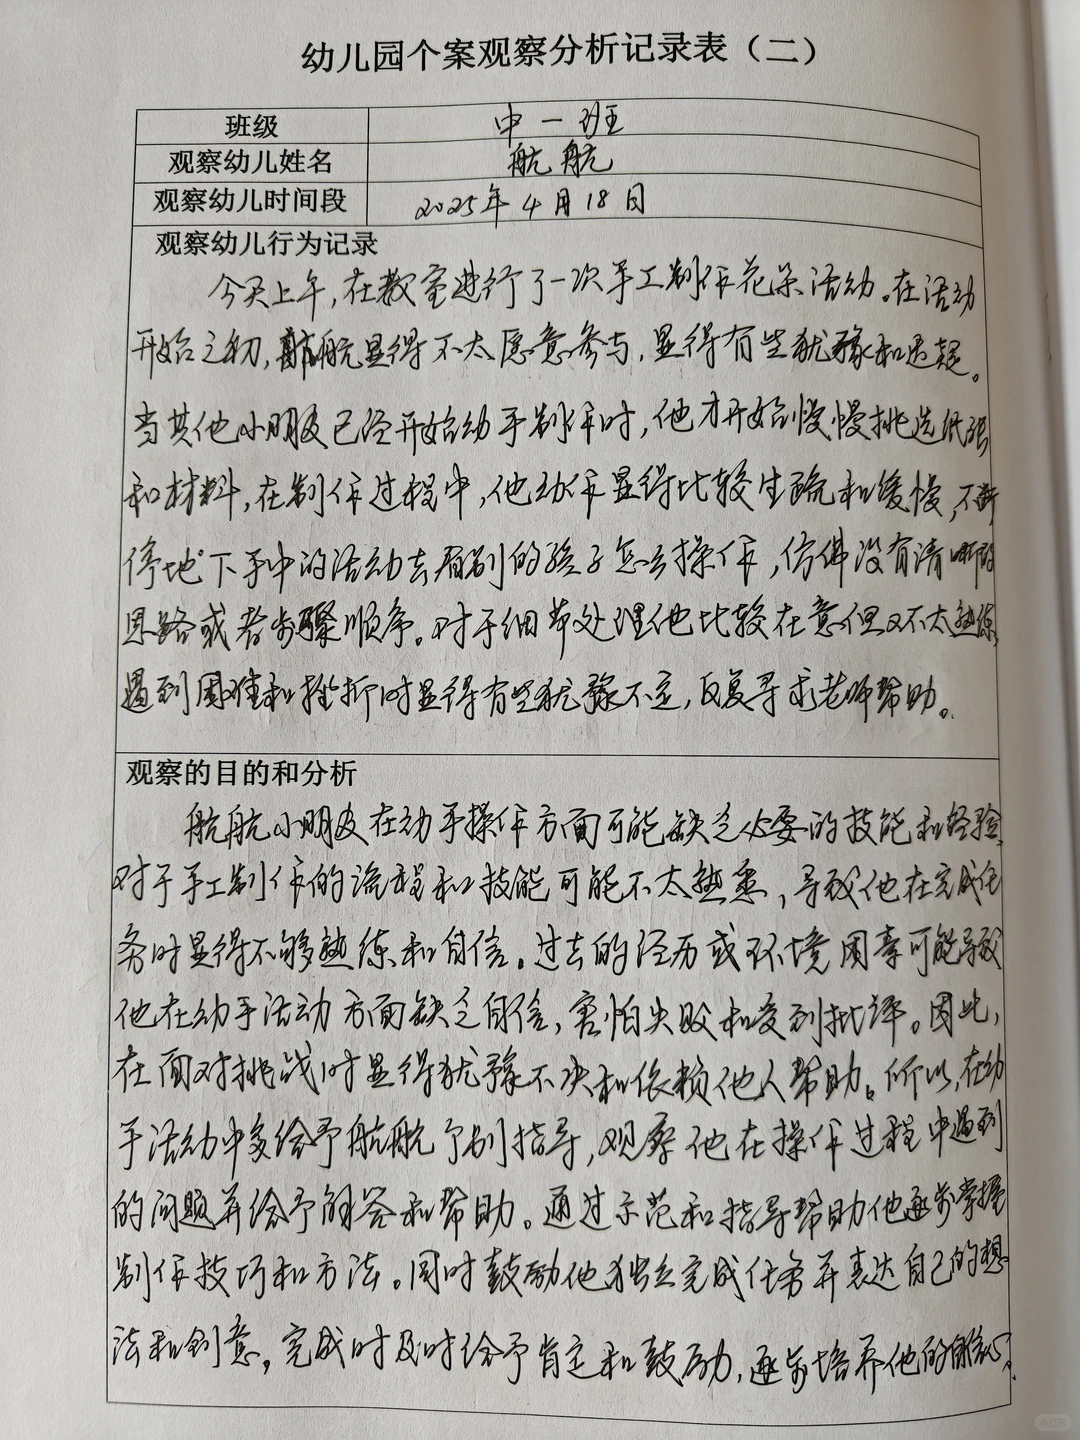 幼儿园个案观察分析记录表（二）
班级 中一班
观察幼儿姓名 航航
观察幼儿时间段 2025年4月18日
观察幼儿行为记录
今天上午，在教室进行了一次手工制作花朵活动。在活动
开始之初，航航显得不太愿意参与，显得有些犹豫和迟疑。
当其他小朋友已经开始动手制作时，他才开始慢慢挑选纸张
和材料，在制作过程中，他动作显得比较生疏和缓慢，不断
停地下手中的活动去看别的孩子怎么操作，仿佛没有清晰的
思路或者步骤顺序。对于细节处理他比较在意但又不太熟练，
遇到困难和挫折时显得有些犹豫不定，反复寻求老师帮助。
观察的目的和分析
航航小朋友在动手操作方面可能缺乏必要的技能和经验，
对于手工制作的流程和技能可能不太熟悉，导致他在完成任
务时显得不够熟练和自信。过去的经历或环境因素可能导致
他在动手活动方面缺乏自信，害怕失败和受到批评。因此，
在面对挑战时显得犹豫不决和依赖他人帮助。所以，在动
手活动中多给予航航个别指导，观察他在操作过程中遇到
的问题并给予解答和帮助。通过示范和指导帮助他逐步掌握
制作技巧和方法。同时鼓励他独立完成任务并表达自己的想
法和创意，完成时及时给予肯定和鼓励，逐步培养他的自信心。
小红书